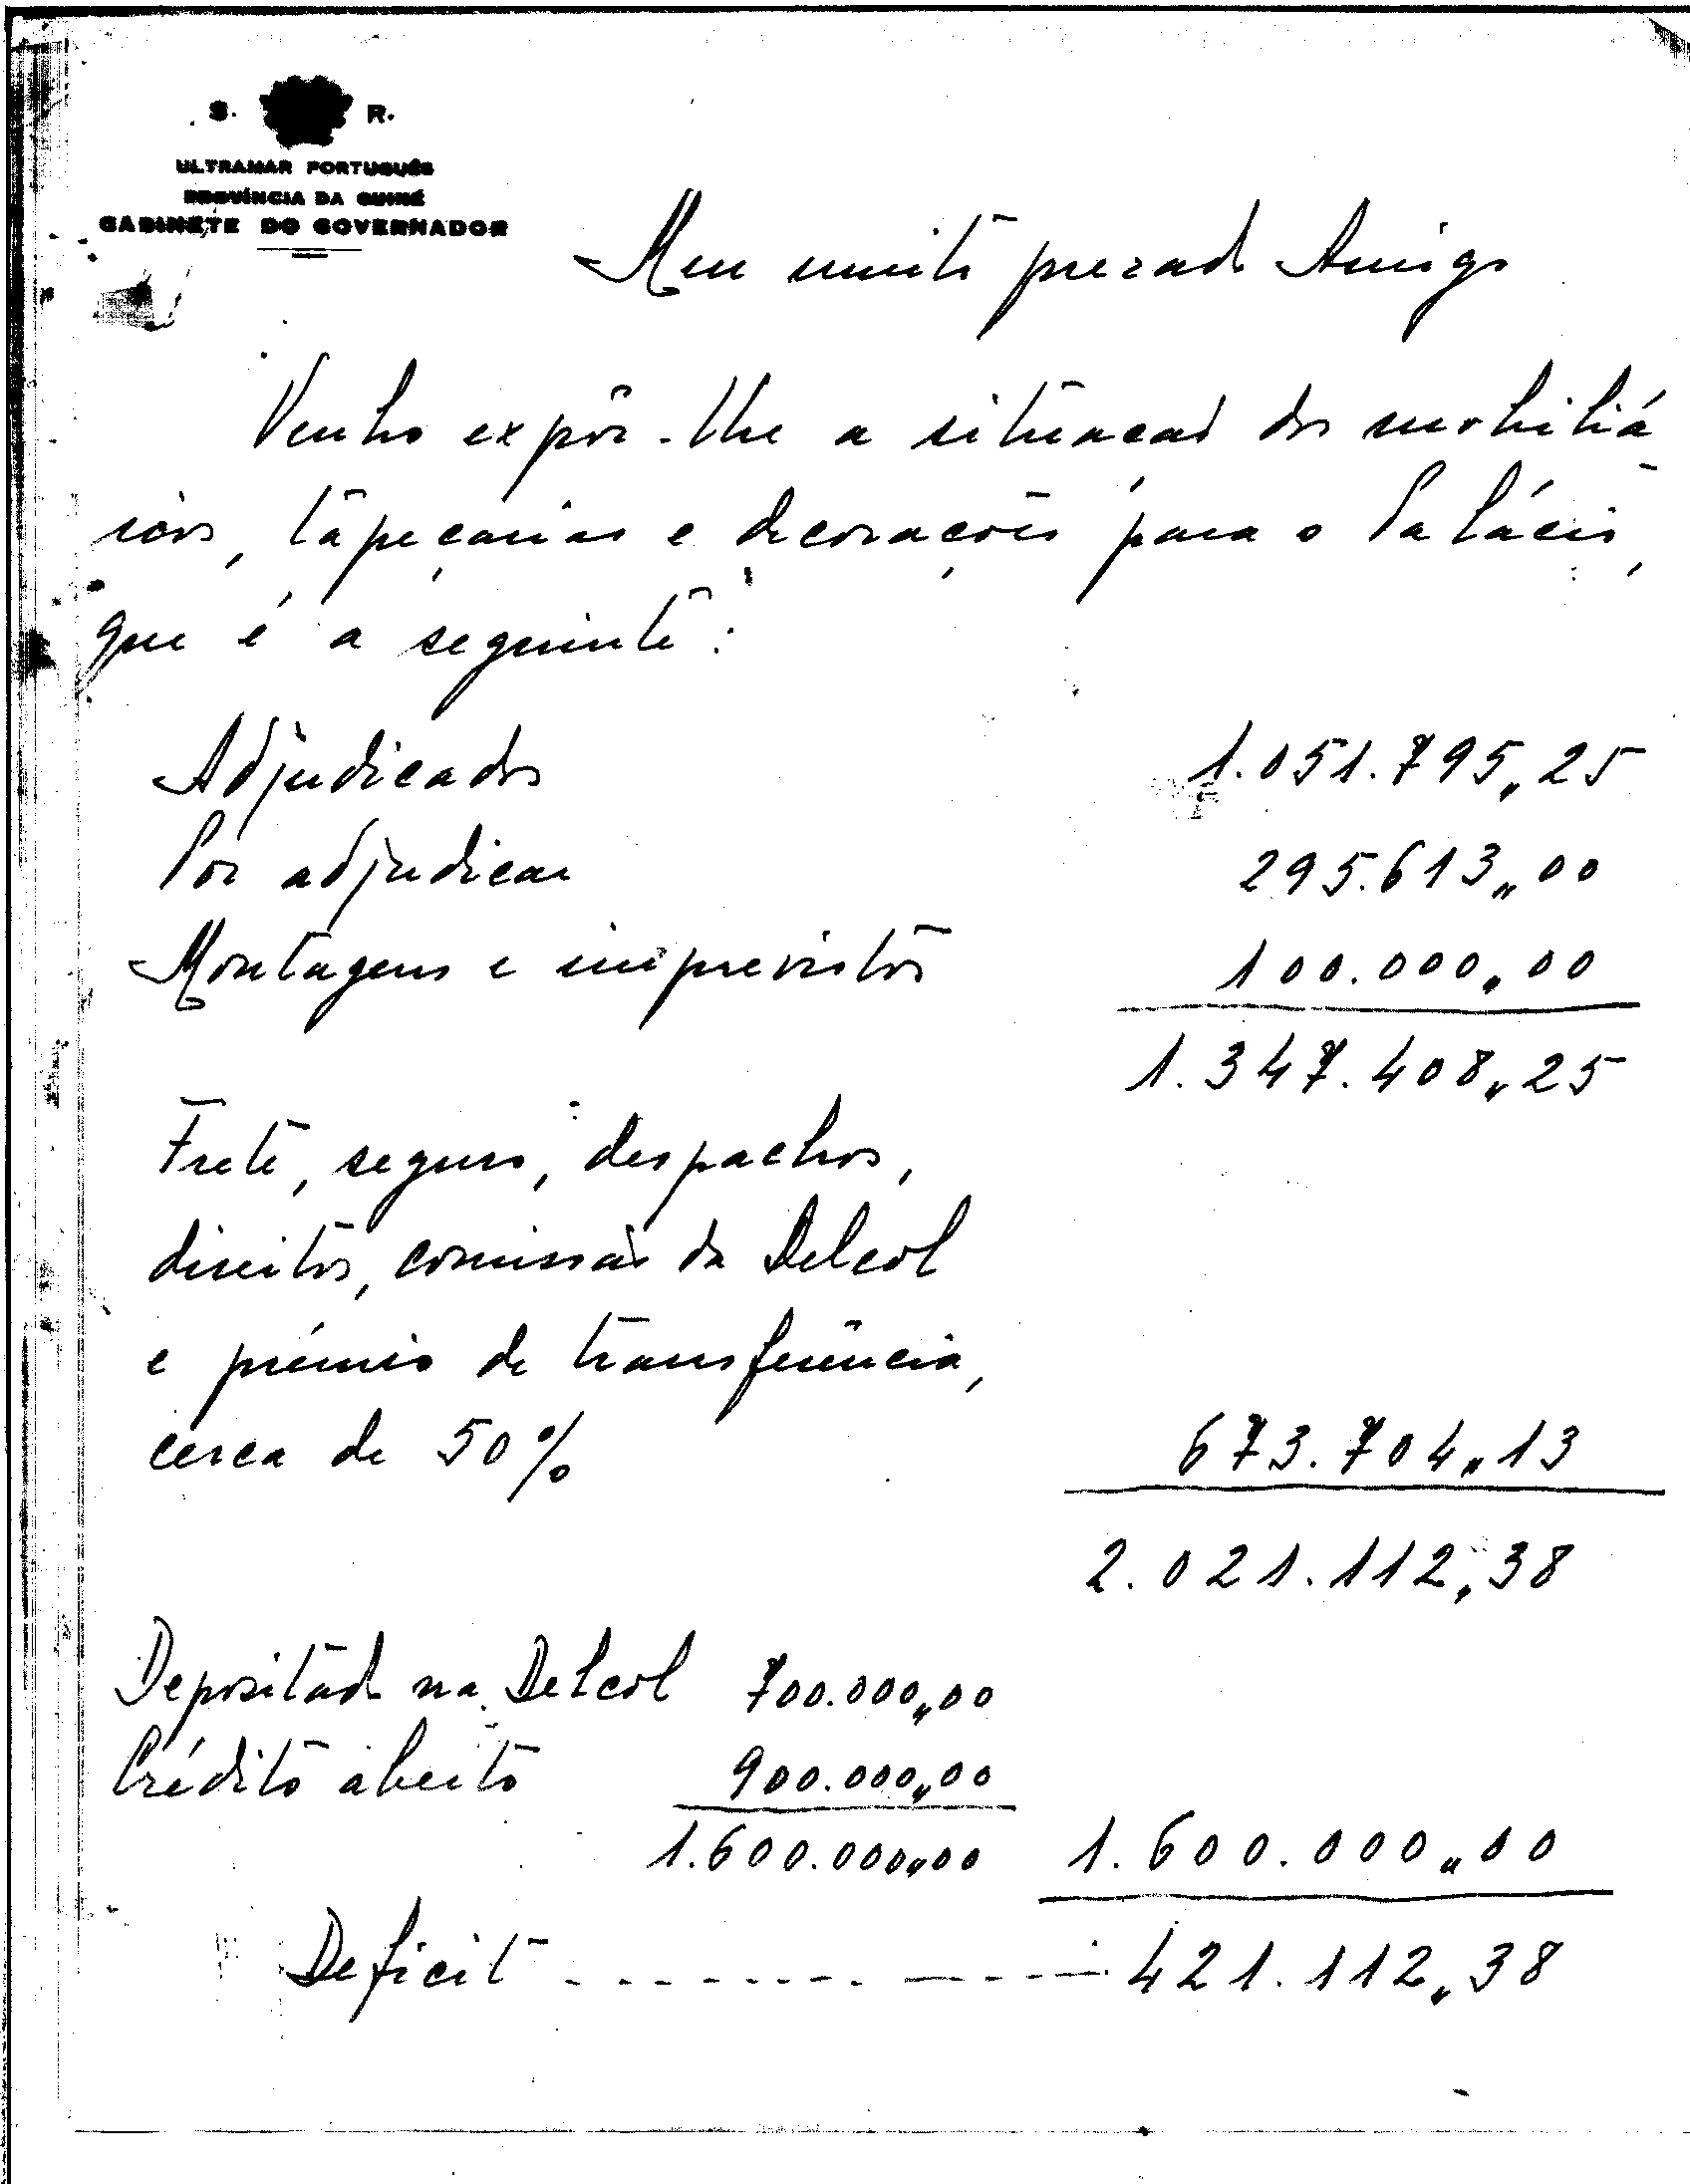 S. R.
ULTRAMAR PORTUGUÊS
PROVÍNCIA DA GUINÉ
GABINETE DO GOVERNADOR
Meu muito prezado Amigo
Venho expôr-lhe a situação dos mobiliá
rios, tapeçarias e decorações para o Palácio,
que é a seguinte:
Adjudicados 1.051.795,,25
Por adjudicar 295.613,,00
Montagens e imprevistos 100.000,,00
1.347.408,,25
Frete, seguro, despachos,
direitos, comissão da Delcol
e prémio de transferência,
cerca de 50% 673.704,,13
2.021.112,,38
Depositado na Delcol 700.000,,00
Crédito aberto 900.000,,00
1.600.000,,00 1.600.000,,00
Deficit ........ ----- 421.112,,38